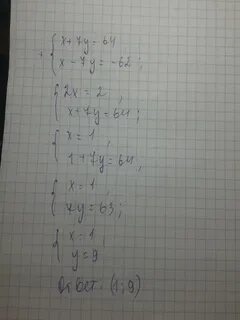 + { x+7y=64
x-7y=-62;
{ 2x=2,
x+7y=64;
{ x=1,
1+7y=64,
{ x=1,
7y=63;
{ x=1,
y=9
Ответ: (1;9)